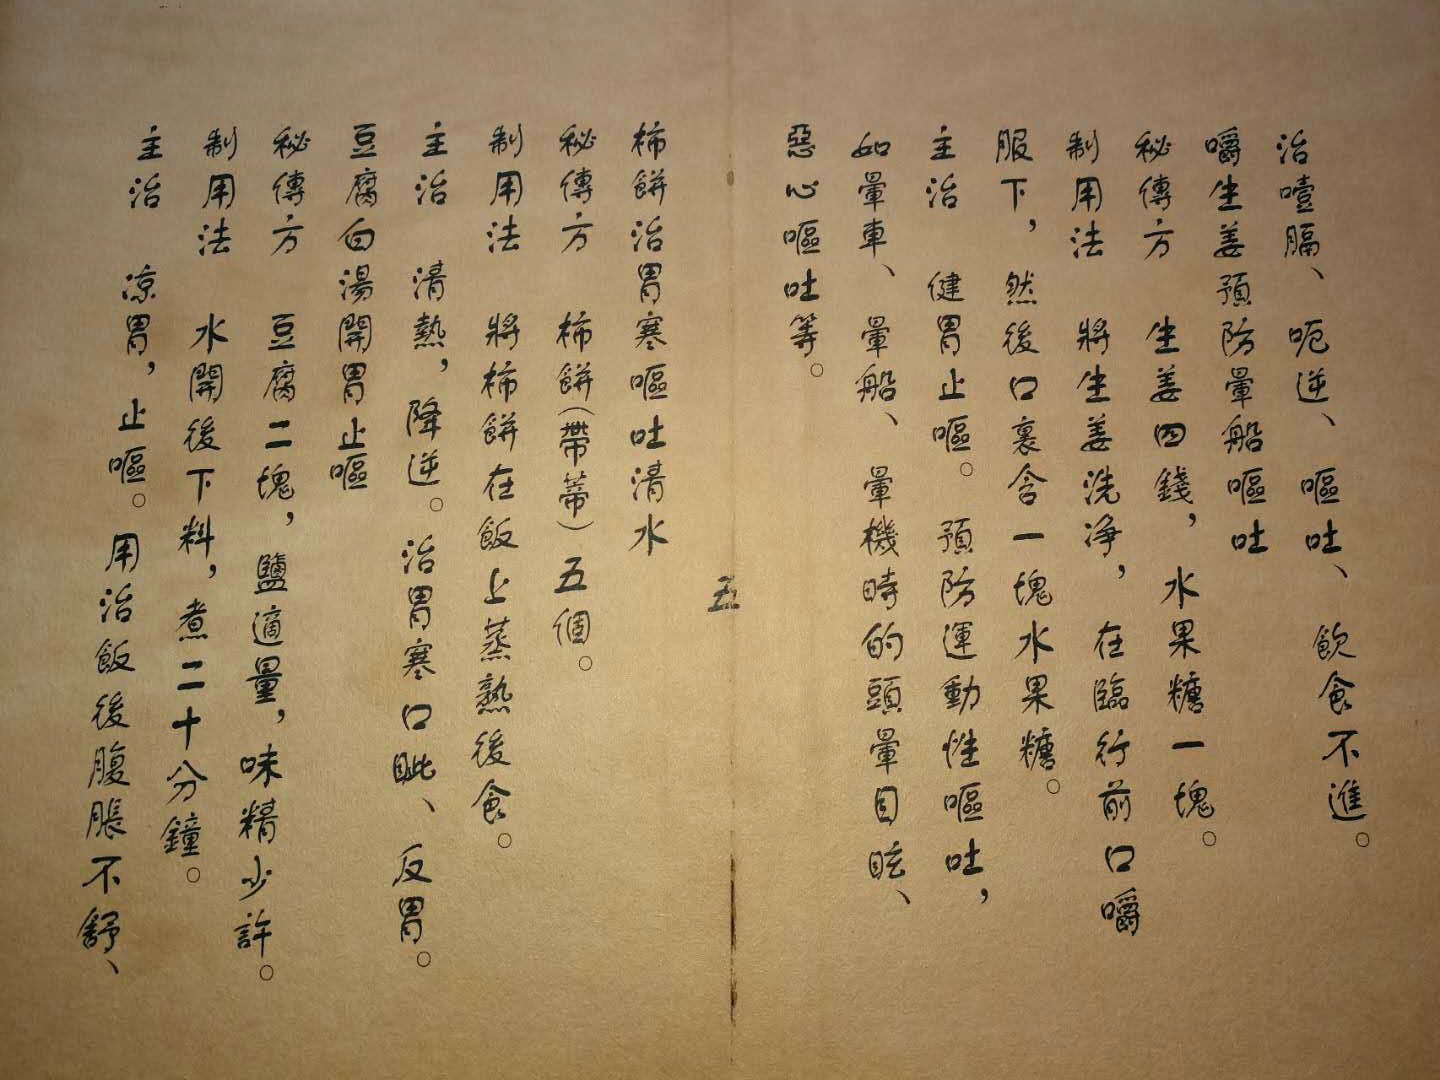 治噎膈、呃逆、嘔吐、飲食不進。
嚼生姜預防暈船嘔吐
秘傳方　生姜四錢，水果糖一塊。
制用法　將生姜洗净，在臨行前口嚼
服下，然後口裏含一塊水果糖。
主治　健胃止嘔。預防運動性嘔吐，
如暈車、暈船、暈機時的頭暈目眩、
惡心嘔吐等。
五
柿餅治胃寒嘔吐清水
秘傳方　柿餅（帶蒂）五個。
制用法　將柿餅在飯上蒸熟後食。
主治　清熱，降逆。治胃寒口眦、反胃。
豆腐白湯開胃止嘔
秘傳方　豆腐二塊，鹽適量，味精少許。
制用法　水開後下料，煮二十分鐘。
主治　凉胃，止嘔。用治飯後腹脹不舒、